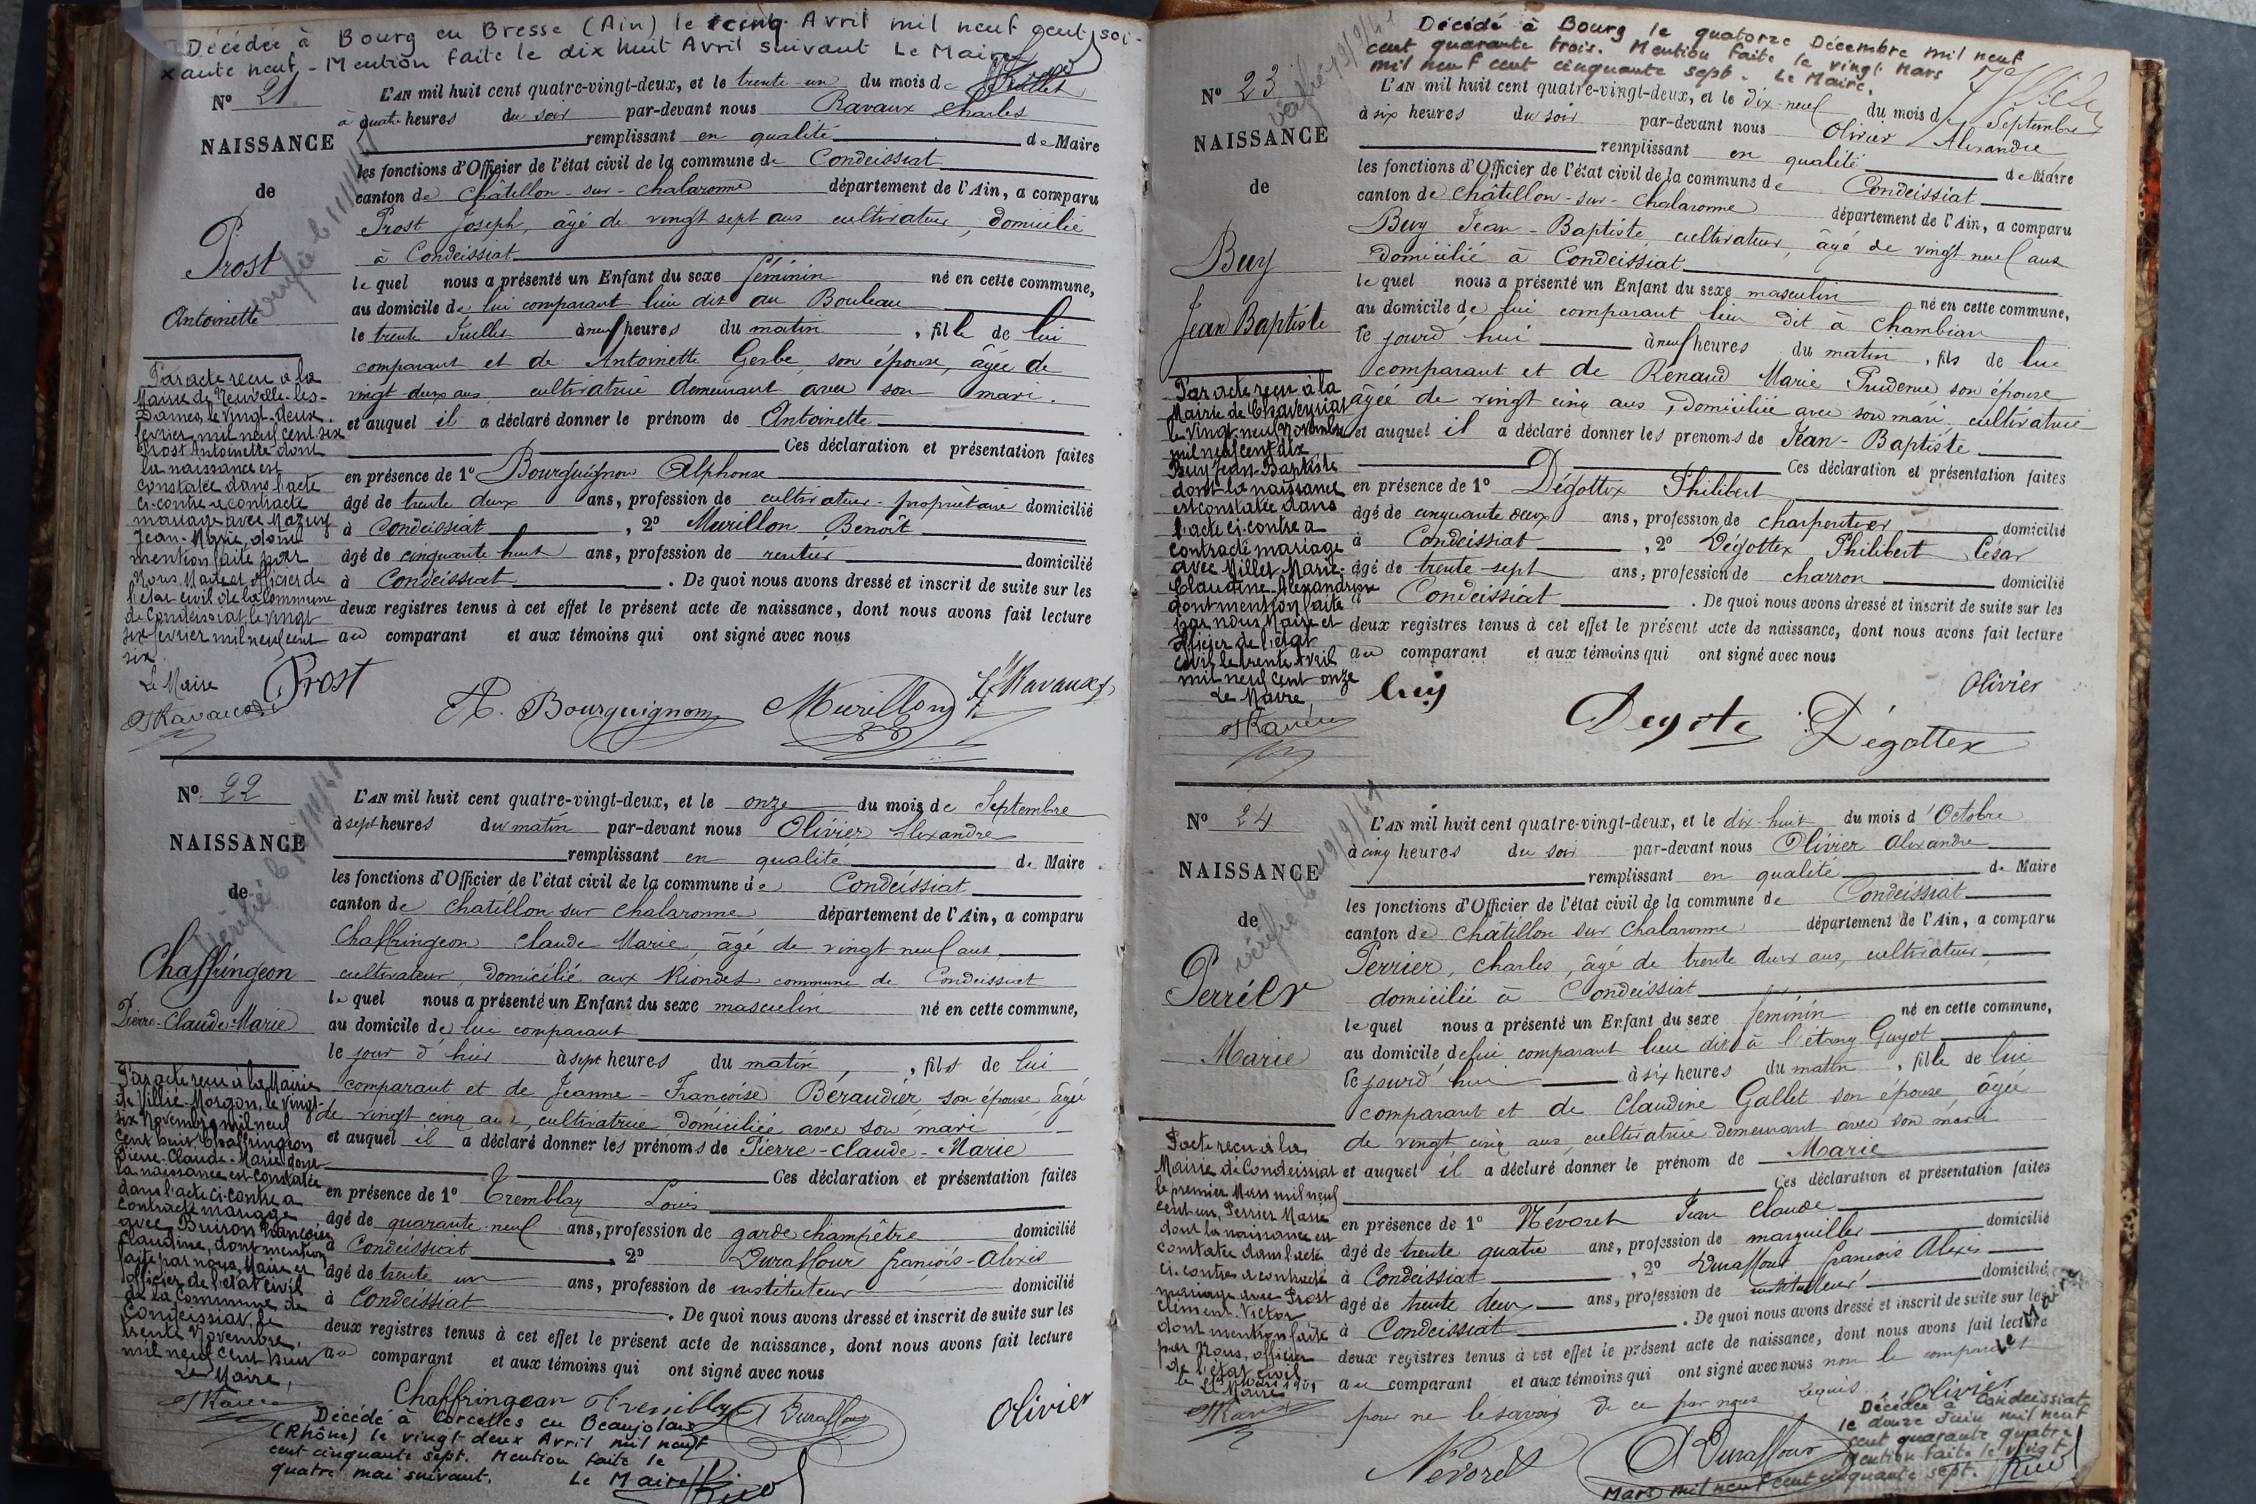 Décédée à Bourg en Bresse (Ain) le cinq Avril mil neuf cent soi-
xante neuf - Mention faite le dix huit Avril suivant Le Maire
N° 21
NAISSANCE
de
Prost
Antoinette
L'AN mil huit cent quatre-vingt-deux, et le trente-un du mois de Juillet
à quatre heures du soir par-devant nous Ravaux Charles
remplissant en qualité de Maire
les fonctions d'Officier de l'état civil de la commune de Condeissiat
canton de Châtillon-sur-Chalaronne département de l'Ain, a comparu
Prost Joseph, âgé de vingt sept ans cultivateur, domicilié
à Condeissiat
le quel nous a présenté un Enfant du sexe féminin né en cette commune,
au domicile de lui comparant lieu dit au Bouleau
le trente Juillet à neuf heures du matin, fille de lui
comparant et de Antoinette Gerbe, son épouse, âgée de
vingt-deux ans cultivatrice demeurant avec son mari.
et auquel il a déclaré donner le prénom de Antoinette
Ces déclaration et présentation faites
en présence de 1° Bourguignon Alphonse
âgé de trente deux ans, profession de cultivateur-propriétaire domicilié
à Condeissiat, 2° Murillon Benoît
âgé de cinquante huit ans, profession de rentier domicilié
à Condeissiat. De quoi nous avons dressé et inscrit de suite sur les
deux registres tenus à cet effet le présent acte de naissance, dont nous avons fait lecture
au comparant et aux témoins qui ont signé avec nous
Par acte reçu à la
Mairie de Neuville-les-
Dames, le vingt-deux
février mil neuf cent six
Prost Antoinette dont
la naissance est
constatée dans l'acte
ci-contre a contracté
mariage avec Mazuy
Jean-Marie, dont
mention faite par
Nous, Maire et officier de
l'état civil de la commune
de Condeissiat, le vingt
six février mil neuf cent
six.
Le Maire
Ravaux
Prost
A. Bourguignon Murillon Ravaux
N° 22
NAISSANCE
de
Chaffringeon
Pierre-Claude-Marie
L'AN mil huit cent quatre-vingt-deux, et le onze du mois de Septembre
à sept heures du matin par-devant nous Olivier Alexandre
remplissant en qualité de Maire
les fonctions d'Officier de l'état civil de la commune de Condeissiat
canton de Chatillon sur Chalaronne département de l'Ain, a comparu
Chaffringeon Claude Marie, âgé de vingt neuf ans
cultivateur, domicilié aux Riondes commune de Condeissiat
le quel nous a présenté un Enfant du sexe masculin né en cette commune,
au domicile de lui comparant
le jour d'hier à sept heures du matin, fils de lui
comparant et de Jeanne-Françoise Béraudier son épouse, âgée
de vingt cinq ans, cultivatrice domiciliée avec son mari
et auquel il a déclaré donner les prénoms de Pierre-Claude-Marie
Ces déclaration et présentation faites
en présence de 1° Tremblay Louis
âgé de quarante-neuf ans, profession de garde champêtre domicilié
à Condeissiat 2° Duraffour François-Alexis
âgé de trente un ans, profession de instituteur domicilié
à Condeissiat. De quoi nous avons dressé et inscrit de suite sur les
deux registres tenus à cet effet le présent acte de naissance, dont nous avons fait lecture
au comparant et aux témoins qui ont signé avec nous
Par acte reçu à la Mairie
de Villié-Morgon, le vingt-
six Novembre mil neuf
cent huit Chaffringeon
Pierre-Claude-Marie dont
la naissance est constatée
dans l'acte ci-contre a
contracté mariage
avec Buiron Françoise
Claudine, dont mention
faite par nous, Maire et
officier de l'état civil
de la Commune de
Condeissiat, le
trente Novembre
mil neuf cent huit
Le Maire,
Chaffringeon Tremblay Duraffour Olivier
Décédé à Corcelles en Beaujolais
(Rhône) le vingt deux Avril mil neuf
cent cinquante sept. Mention faite le
quatre mai suivant. Le Maire
Décédé à Bourg le quatorze Décembre mil neuf
cent quarante trois. Mention faite le vingt Mars
mil neuf cent cinquante sept. Le Maire,
N° 23
NAISSANCE
de
Buy
Jean Baptiste
L'AN mil huit cent quatre-vingt-deux, et le dix-neuf du mois de Septembre
à six heures du soir par-devant nous Olivier Alexandre
remplissant en qualité de Maire
les fonctions d'Officier de l'état civil de la commune de Condeissiat
canton de Châtillon-sur-Chalaronne département de l'Ain, a comparu
Buy Jean-Baptiste cultivateur, âgé de vingt neuf ans
domicilié à Condeissiat
le quel nous a présenté un Enfant du sexe masculin né en cette commune,
au domicile de lui comparant lieu dit à Chambian
le jourd'hui à neuf heures du matin, fils de lui
comparant et de Renaud Marie Prudence son épouse
âgée de vingt cinq ans, domiciliée avec son mari cultivatrice
et auquel il a déclaré donner les prenoms de Jean-Baptiste
Ces déclaration et présentation faites
en présence de 1° Dégottex Philibert
âgé de cinquante deux ans, profession de charpentier domicilié
à Condeissiat, 2° Dégottex Philibert César
âgé de trente-sept ans, profession de charron domicilié
à Condeissiat. De quoi nous avons dressé et inscrit de suite sur les
deux registres tenus à cet effet le présent acte de naissance, dont nous avons fait lecture
au comparant et aux témoins qui ont signé avec nous
Par acte reçu à la
Mairie de Chaveyriat
le vingt neuf Novembre
mil neuf cent dix
Buy Jean-Baptiste
dont la naissance
est constatée dans
l'acte ci-contre a
contracté mariage
avec Millet Marie-
Claudine Alexandrine
dont mention faite
par nous Maire et
officier de l'état
civil le trente Avril
mil neuf cent onze
Le Maire,
buy Degote Dégottex Olivier
N° 24
NAISSANCE
de
Perrier
Marie
L'AN mil huit cent quatre-vingt-deux, et le dix-huit du mois d'Octobre
à cinq heures du soir par-devant nous Olivier Alexandre
remplissant en qualité de Maire
les fonctions d'Officier de l'état civil de la commune de Condeissiat
canton de Châtillon sur Chalaronne département de l'Ain, a comparu
Perrier, Charles, âgé de trente deux ans, cultivateur,
domicilié à Condeissiat
le quel nous a présenté un Enfant du sexe féminin né en cette commune,
au domicile de lui comparant lieu dit à l'étang Guyot
le jourd'hui à six heures du matin, fille de lui
comparant et de Claudine Gallet son épouse âgée
de vingt cinq ans, cultivatrice demeurant avec son mari
et auquel il a déclaré donner le prénom de Marie
Ces déclaration et présentation faites
en présence de 1° Névoret Jean Claude
âgé de trente quatre ans, profession de marguiller domicilié
à Condeissiat, 2° Duraffour François Alexis
âgé de trente deux ans, profession de instituteur domicilié
à Condeissiat. De quoi nous avons dressé et inscrit de suite sur les
deux registres tenus à cet effet le présent acte de naissance, dont nous avons fait lecture
au comparant et aux témoins qui ont signé avec nous non le comparant
pour ne le savoir de ce par nous requis
P acte reçu à la
Mairie de Condeissiat
le premier Mars mil neuf
cent un, Perrier Marie
dont la naissance est
constatée dans l'acte
ci-contre a contracté
mariage avec Prost
Clément-Victor
dont mention faite
par Nous, officier
de l'état civil
Le Maire
Névoret Duraffour Olivier
Décédée à Condeissiat
le douze Juin mil neuf
cent quarante quatre
Mention faite le vingt
Mars mil neuf cent cinquante sept.
Le Maire